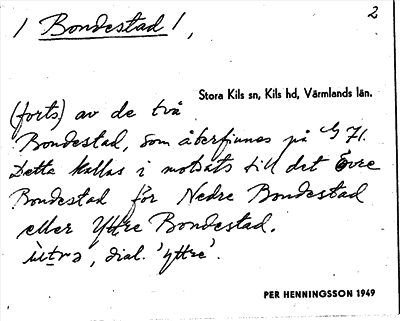 2
/ Bondestad /,
Stora Kils sn, Kils hd, Värmlands län.
(forts) av de två
Bondestad, som återfinnes på G 71.
Detta kallas i motsats till det Övre
Bondestad för Nedre Bondestad
eller Yttre Bondestad.
dial. 'yttre'.
PER HENNINGSSON 1949